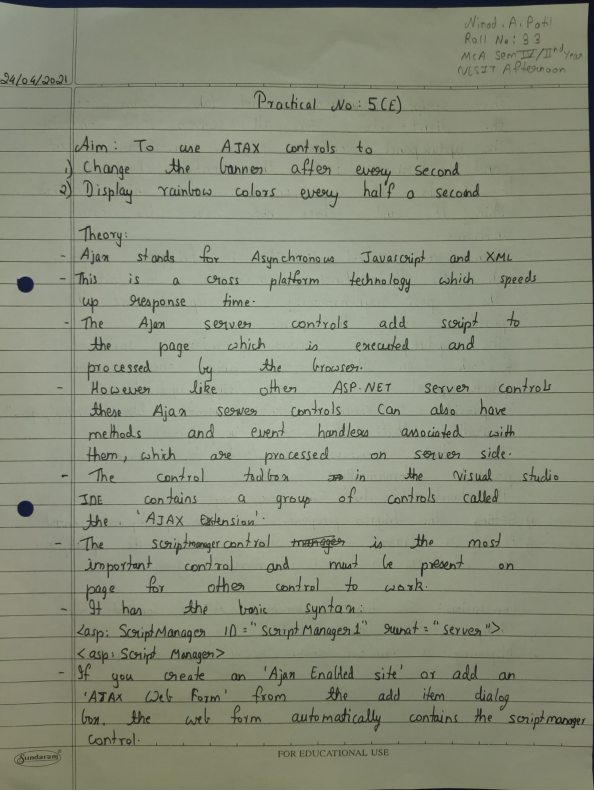 Ninad. A. Patil
Roll No: 33
MCA Sem IV/IInd Year
Afternoon
24/04/2021
Practical No: 5(E)
Aim: To use AJAX controls to
1) Change the banner after every second
2) Display rainbow colors every half a second
Theory:
- Ajax stands for Asynchronous Javascript and XML
- This is a cross platform technology which speeds
up response time.
- The Ajax server controls add script to
the page which is executed and
processed by the browser.
- However like other ASP.NET server controls
these Ajax server controls can also have
methods and event handlers associated with
them, which are processed on server side.
- The control toolbox in the visual studio
IDE contains a group of controls called
the 'AJAX Extension'.
- The scriptmanager control manager is the most
important control and must be present on
page for other control to work.
- It has the basic syntax:
<asp: ScriptManager ID="ScriptManager1" runat="server">
<asp: Script Manager>
- If you create an 'Ajax Enabled site' or add an
'AJAX Web Form' from the add item dialog
box, the web form automatically contains the scriptmanager
control.
Sundaram
FOR EDUCATIONAL USE